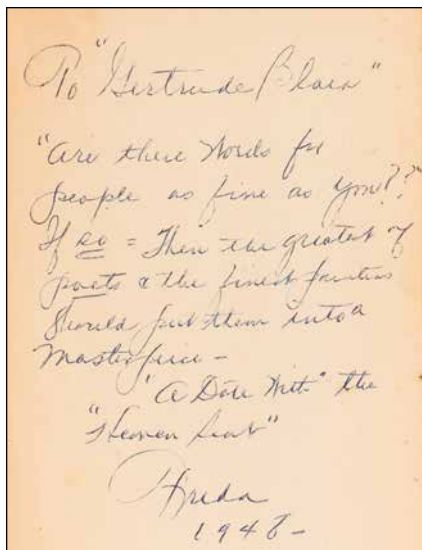 To "Gertrude Blair"
"Are there Words for
people as fine as you"??
If so = Then the greatest of
poets & the finest painters
Should put them into a
Masterpiece –
"A Date With" the
"Heaven Sent"
Freda
1948 –